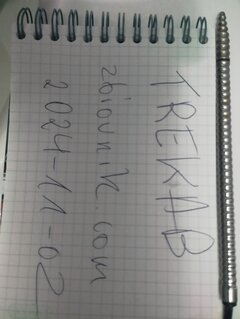 TREKAB
zbiovnik.com
2024-11-02